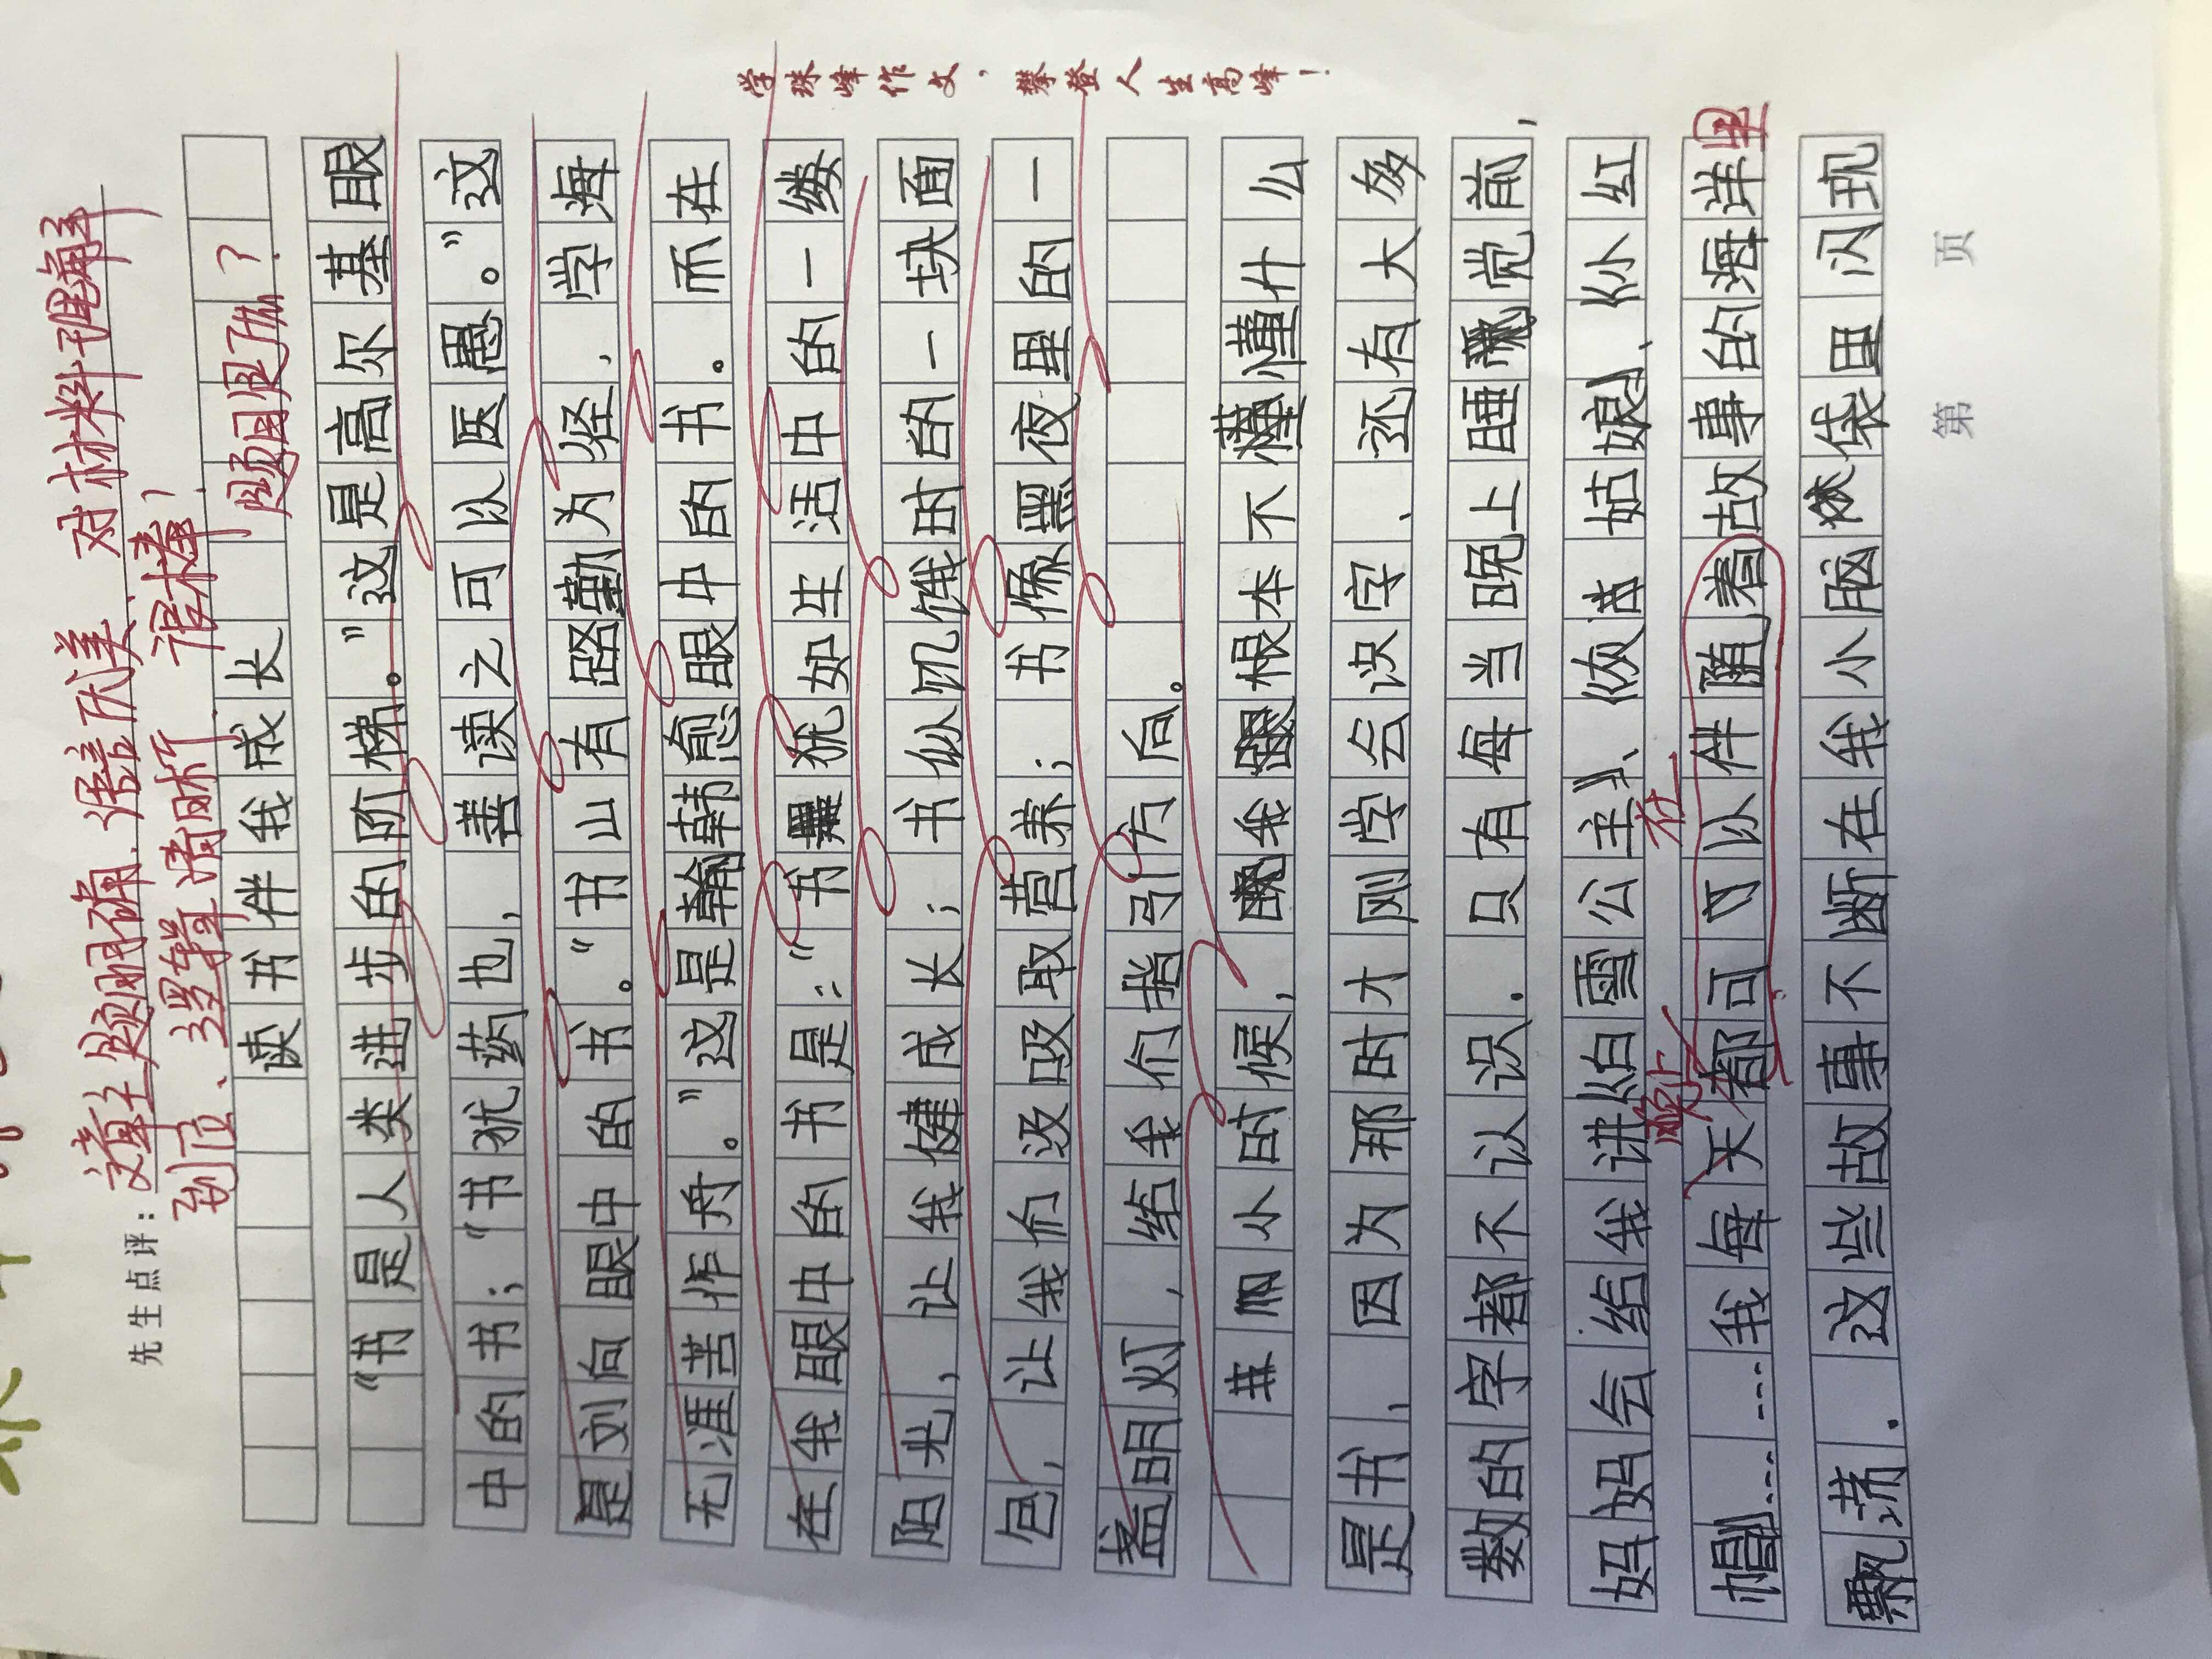 先生点评：文章主题明确、语言优美、对材料理解
到位、逻辑清晰，很棒！
读书伴我成长
题目呢？
“书是人类进步的阶梯。”这是高尔基眼
中的书；“书犹药也，善读之可以医愚。”这
是刘向眼中的书。“书山有路勤为径，学海
无涯苦作舟。”这是韩愈眼中的书。而在
在我眼中的书是：“书犹如生活中的一缕
阳光，让我健成长；书似饥饿时的一块面
包，让我们汲取营养；书像黑夜里的一
盏明灯，给我们指引方向。
小时候，我根本不懂什么
是书，因为那时才刚学会识字，还有大多
数的字都不认识。只有每当晚上睡觉前，
妈妈会给我讲《白雪公主》、《灰姑娘》、《小红
帽》……我每天都可以伴随着故事的海洋里
飘荡。这些故事不断在我小脑袋里闪现
在
学珠峰作文，攀登人生高峰！
第 页